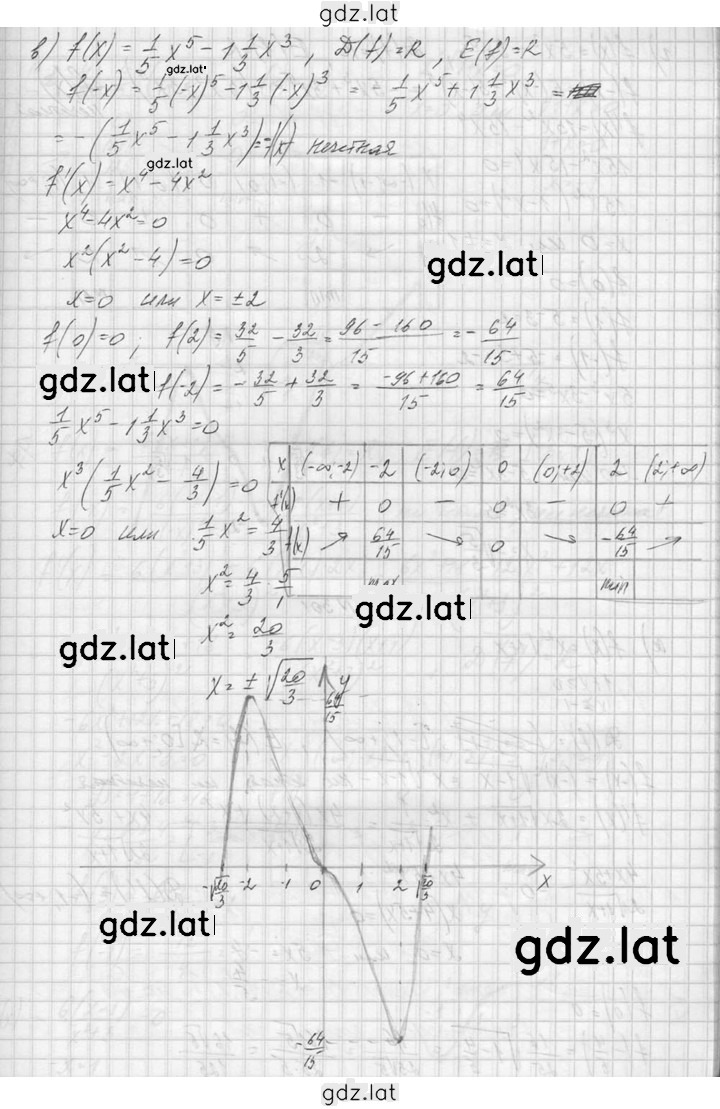 gdz.lat
в) f(x) = 1/5 x⁵ − 1 1/3 x³, D(f) = R, E(f) = R
gdz.lat
f(-x) = 1/5 (-x)⁵ − 1 1/3 (-x)³ = − 1/5 x⁵ + 1 1/3 x³ =
= −(1/5 x⁵ − 1 1/3 x³) = -f(x) нечетная
gdz.lat
f'(x) = x⁴ − 4x²
x⁴ − 4x² = 0
x²(x² − 4) = 0
gdz.lat
x = 0 или x = ±2
f(0) = 0; f(2) = 32/5 − 32/3 = (96 − 160)/15 = − 64/15
gdz.lat
f(-2) = − 32/5 + 32/3 = (−96 + 160)/15 = 64/15
1/5 x⁵ − 1 1/3 x³ = 0
x³(1/5 x² − 4/3) = 0
x = 0 или 1/5 x² = 4/3
x² = 4/3 · 5/1
x² = 20/3
x = ± √(20/3)
x (-∞; -2) -2 (-2; 0) 0 (0; +2) 2 (2; +∞)
f'(x) + 0 − 0 − 0 +
f(x) ↗ 64/15 ↘ 0 ↘ -64/15 ↗
max min
gdz.lat
gdz.lat
y
64/15
-√(20/3) -2 -1 0 1 2 √(20/3) x
gdz.lat
gdz.lat
-64/15
gdz.lat